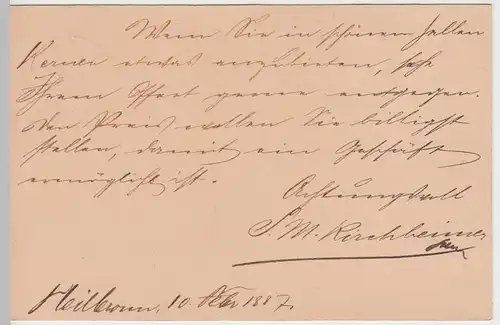 Wenn Sie in schönen hellen
Kernen etwas anzubieten, sehe
Ihrem Offert gerne entgegen.
Den Preis wollen Sie billigst
stellen, damit ein Geschäft
ermöglicht ist.
Achtungsvoll
S. M. Kirchheimer
Heilbronn, 10. 1887.